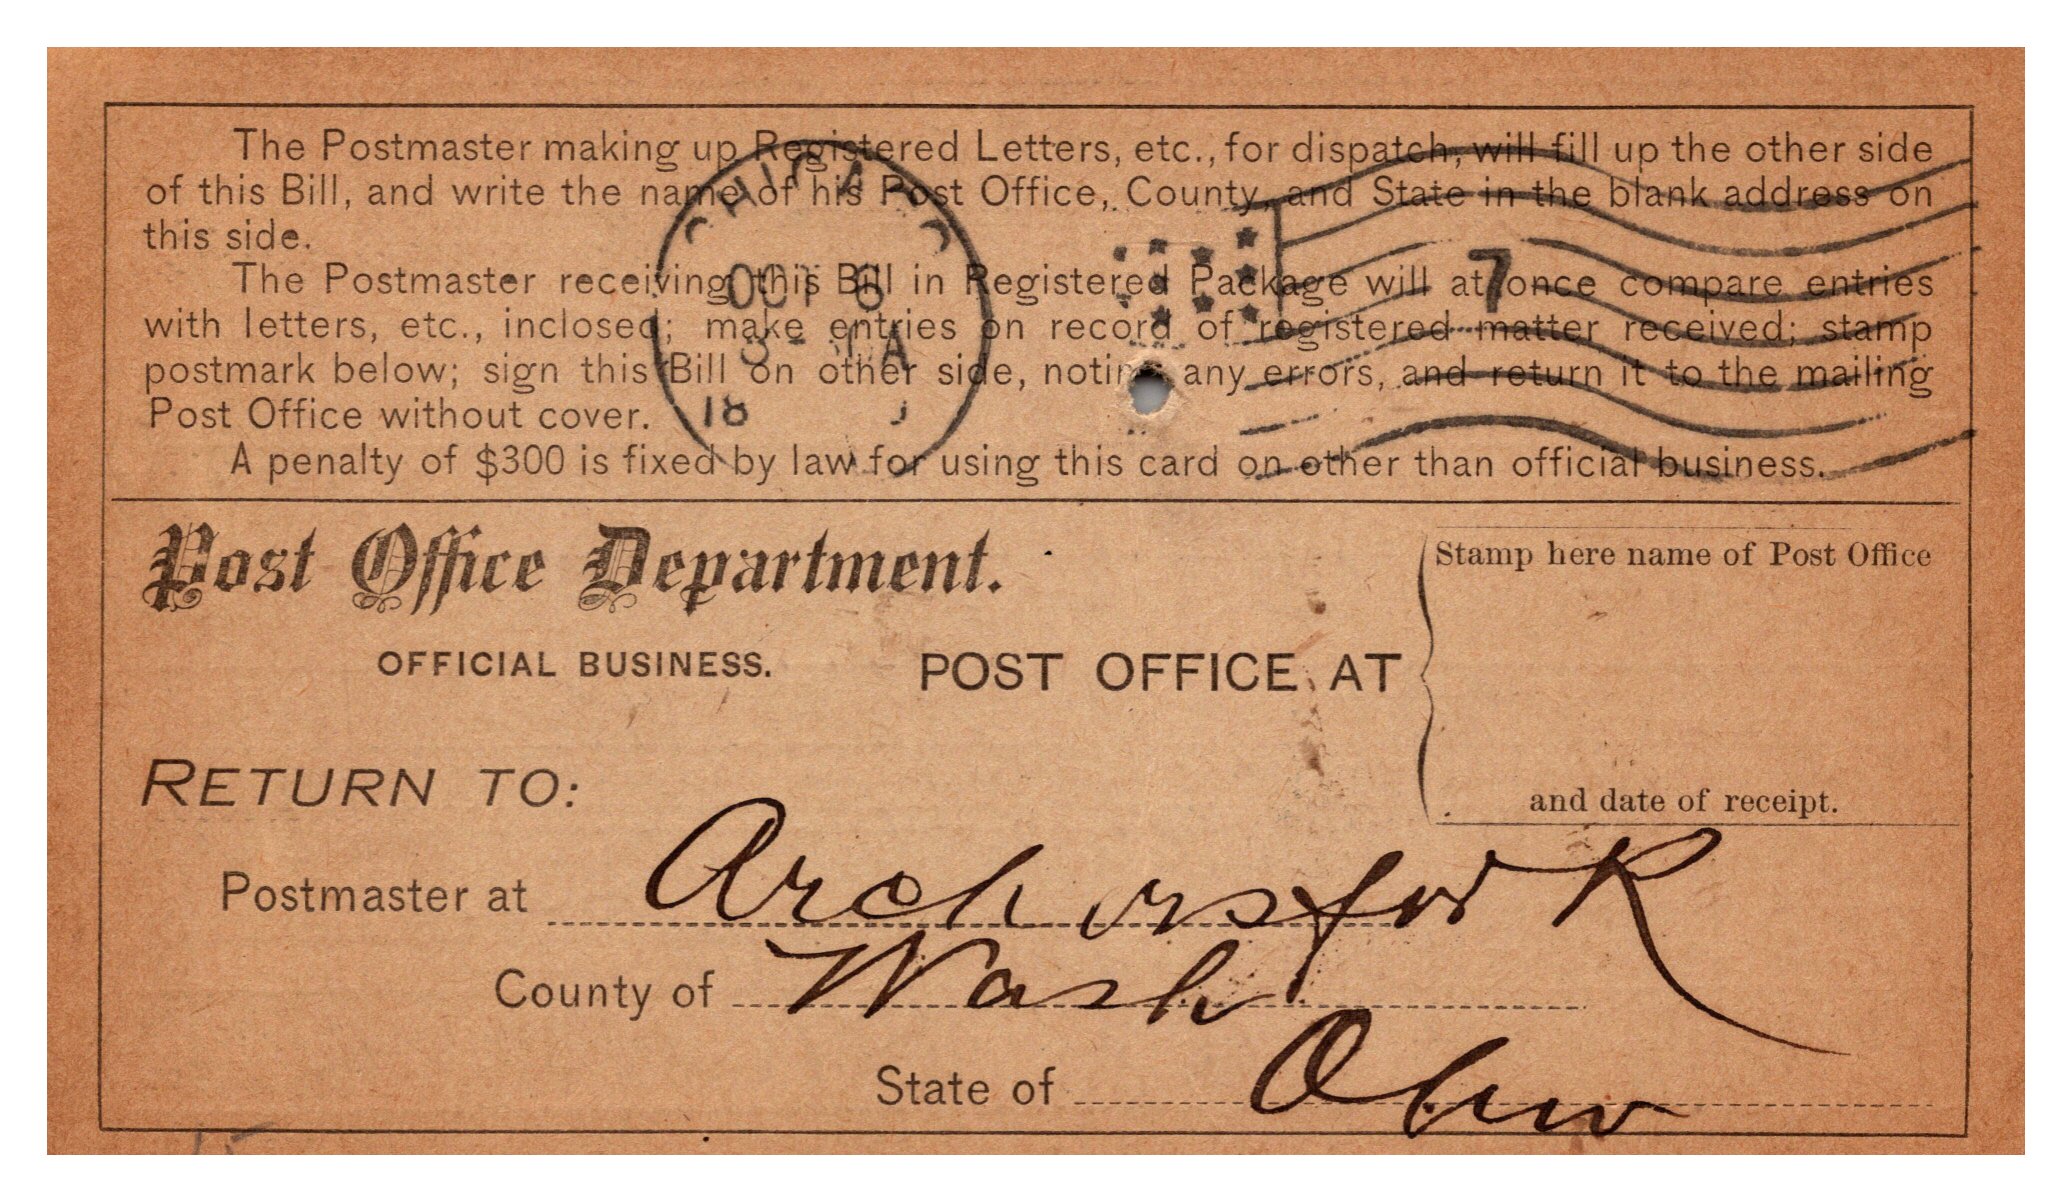 The Postmaster making up Registered Letters, etc., for dispatch, will fill up the other side
of this Bill, and write the name of his Post Office, County, and State in the blank address on
this side.
The Postmaster receiving this Bill in Registered Package will at once compare entries
with letters, etc., inclosed; make entries on record of registered matter received; stamp
postmark below; sign this Bill on other side, noting any errors, and return it to the mailing
Post Office without cover.
A penalty of $300 is fixed by law for using this card on other than official business.
CHICAGO
OCT 6
18
7
Post Office Department.
OFFICIAL BUSINESS.
POST OFFICE AT
Stamp here name of Post Office
and date of receipt.
RETURN TO:
Postmaster at Archers forK
County of Wash
State of Ohio